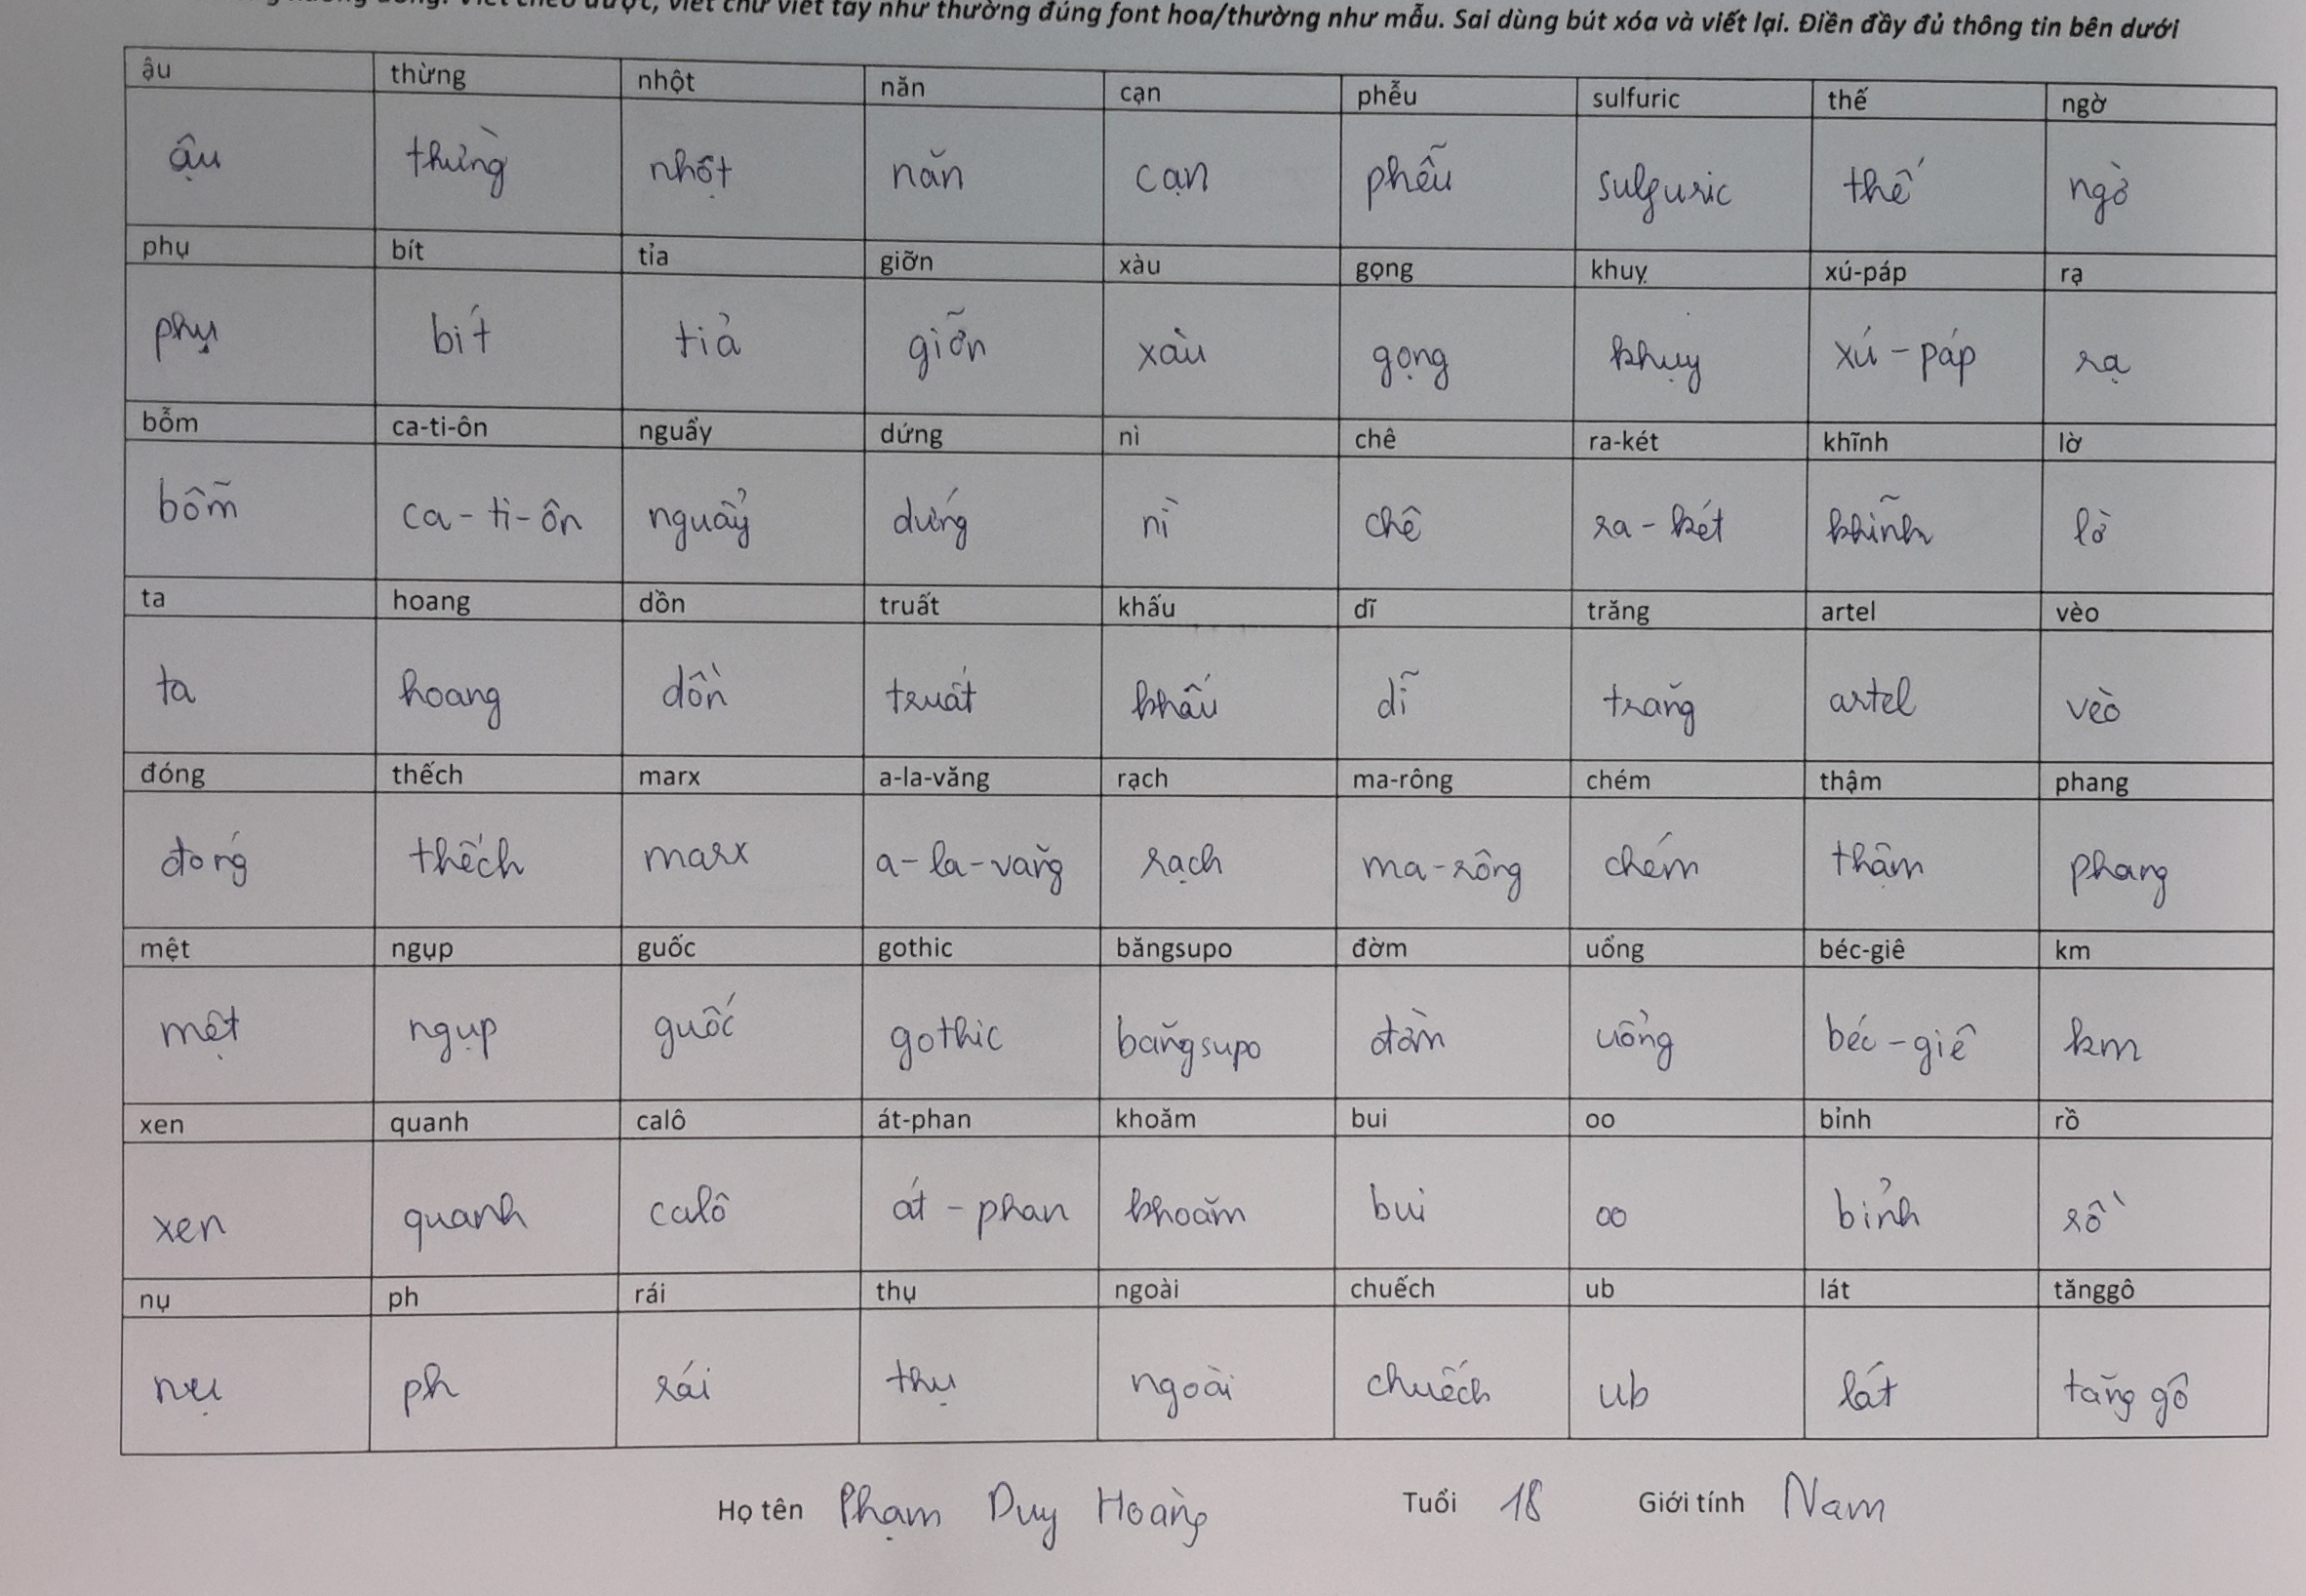 viết theo được, viết chữ viết tay như thường đúng font hoa/thường như mẫu. Sai dùng bút xóa và viết lại. Điền đầy đủ thông tin bên dưới
ậu thừng nhột năn cạn phễu sulfuric thế ngờ
ậu thừng nhột năn cạn phễu sulfuric thế ngờ
phụ bít tỉa giỡn xàu gọng khuỵ xú-páp rạ
phụ bít tỉa giỡn xàu gọng khụy xú-páp rạ
bỗm ca-ti-ôn nguẩy dứng nì chê ra-két khĩnh lờ
bỗm ca-ti-ôn nguẩy dứng nì chê ra-két khĩnh lờ
ta hoang dồn truất khấu dĩ trăng artel vèo
ta hoang dồn truất khấu dĩ trăng artel vèo
đóng thếch marx a-la-văng rạch ma-rông chém thậm phang
đóng thếch marx a-la-văng rạch ma-rông chém thậm phang
mệt ngụp guốc gothic băngsupo đờm uổng béc-giê km
mệt ngụp guốc gothic băngsupo đờm uổng béc-giê km
xen quanh calô át-phan khoăm bui oo bỉnh rồ
xen quanh calô át-phan khoăm bui oo bỉnh rồ
nụ ph rái thụ ngoài chuếch ub lát tănggô
nụ ph rái thụ ngoài chuếch ub lát tăng gô
Họ tên Phạm Duy Hoàng Tuổi 18 Giới tính Nam